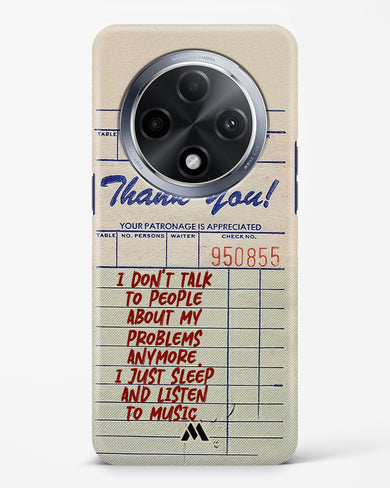 TABLE
Thank You!
YOUR PATRONAGE IS APPRECIATED
TABLE NO. PERSONS WAITER CHECK NO.
950855
I DON'T TALK
TO PEOPLE
ABOUT MY
PROBLEMS
ANYMORE.
I JUST SLEEP
AND LISTEN
TO MUSIC